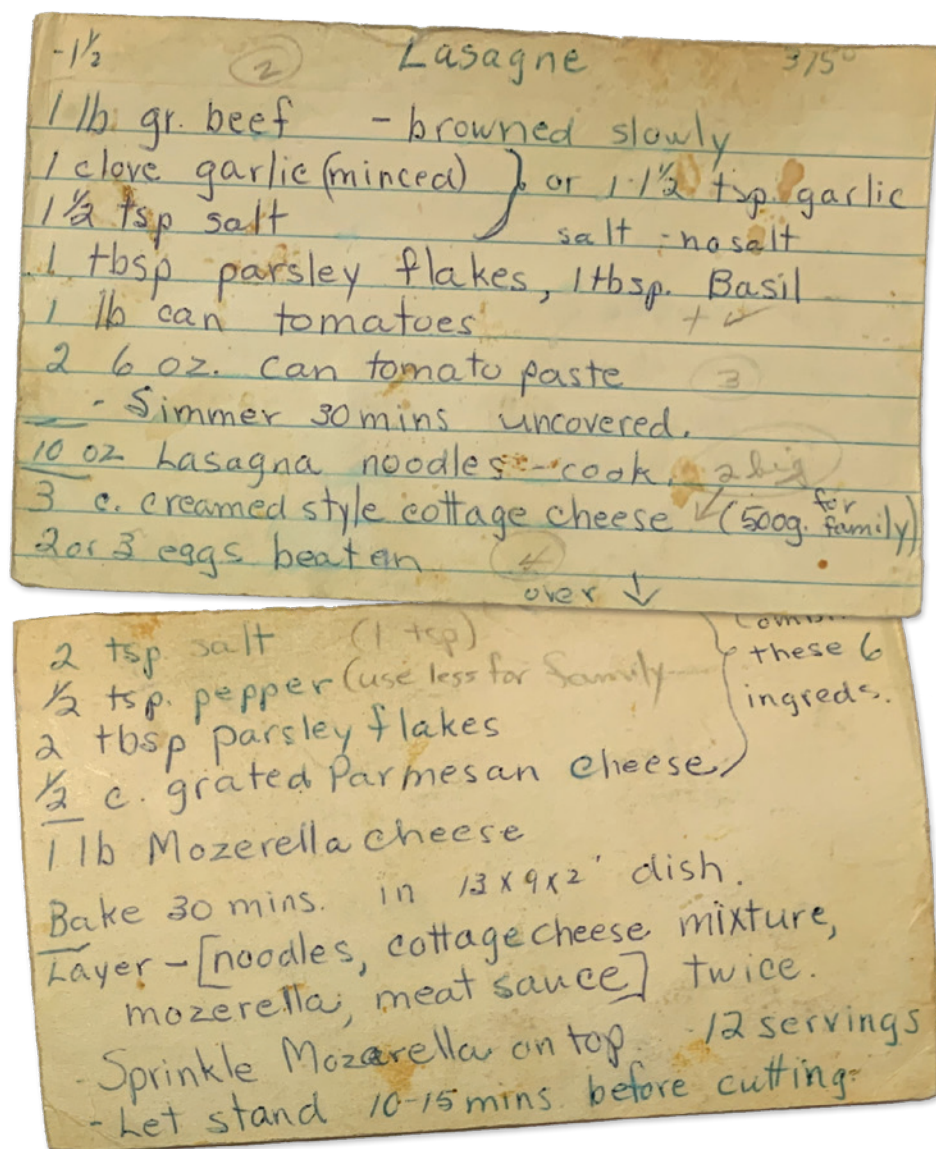 -1½ 2 Lasagne 375°
1 lb gr. beef - browned slowly
1 clove garlic (minced) } or 1-1½ tsp. garlic
1½ tsp salt salt - no salt
1 tbsp parsley flakes, 1 tbsp. Basil
1 lb can tomatoes + ✓
2 6 oz. can tomato paste 3
- Simmer 30 mins uncovered.
10 oz Lasagna noodles - cook. 2 big
3 c. creamed style cottage cheese (500g. for family)
2 or 3 eggs beaten 4
over ↓
2 tsp salt (1 tsp)
½ tsp. pepper (use less for family
2 tbsp parsley flakes
½ c. grated Parmesan cheese
} these 6
ingreds.
1 lb Mozerella cheese
Bake 30 mins. in 13 x 9 x 2' dish.
Layer - [noodles, cottage cheese mixture,
mozerella, meat sauce] twice.
- Sprinkle Mozarella on top. -12 servings
- Let stand 10-15 mins before cutting.